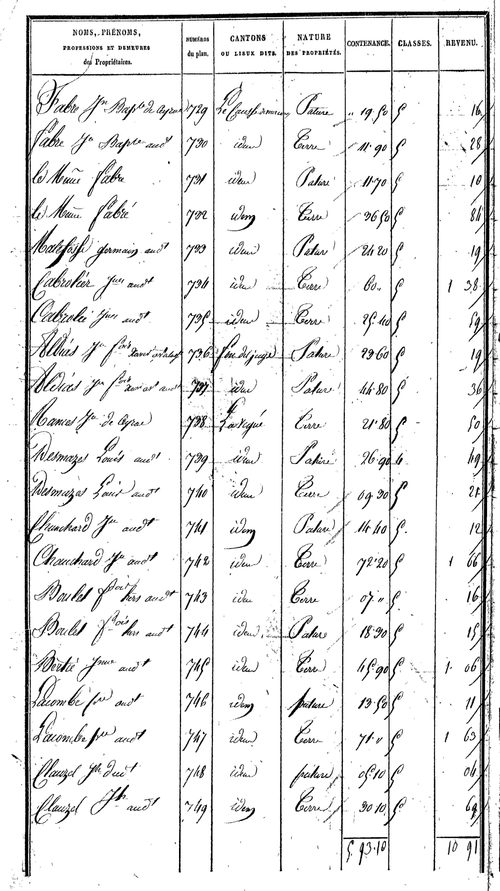 NOMS, PRÉNOMS, PROFESSIONS ET DEMEURES des Propriétaires. NUMÉROS du plan. CANTONS OU LIEUX DITS. NATURE DES PROPRIÉTÉS. CONTENANCE. CLASSES. REVENU.
Fabre Jn Bapte de 729 Pature " 19.50 5 16
Fabre Jn Bapte audt 730 idem Terre 11.90 5 28
le Même Fabre 731 idem Pature 11.70 5 10
le Même Fabre 732 idem Terre 36.50 5 86
germain audt 733 idem Pature 24 20 5 19
Cabrolier audt 734 idem Terre 60. 5 1 38
audt 735 idem Terre 25.40 5 59
Aldias Jn fois 736 Pature 23.60 5 19
Aldias Jn fois audt 737 idem Pature 44.80 5 36
Rames Jn de 738 Terre 21.80 5 50
Desmazes Louis audt 739 idem Pature 26.90 4 49
Desmazes Louis audt 740 idem Terre 09.30 5 21
Chauchard Jn audt 741 idem Pature 14.40 5 12
Chauchard Jn audt 742 idem Terre 72.20 5 1 66
Boulet fois audt 743 idem Terre 07 " 5 16
Boulet fois audt 744 idem Pature 18.90 5 15
audt 745 idem Terre 45.90 5 1 06
Lacombe audt 746 idem pature 13.50 5 11
Lacombe audt 747 idem Terre 71. " 5 1 63
Clauzel Jh dudt 748 idem pature 05.10 5 04
Clauzel Jh audt 749 idem Terre 30 10 5 69
5. 93.10 10 91